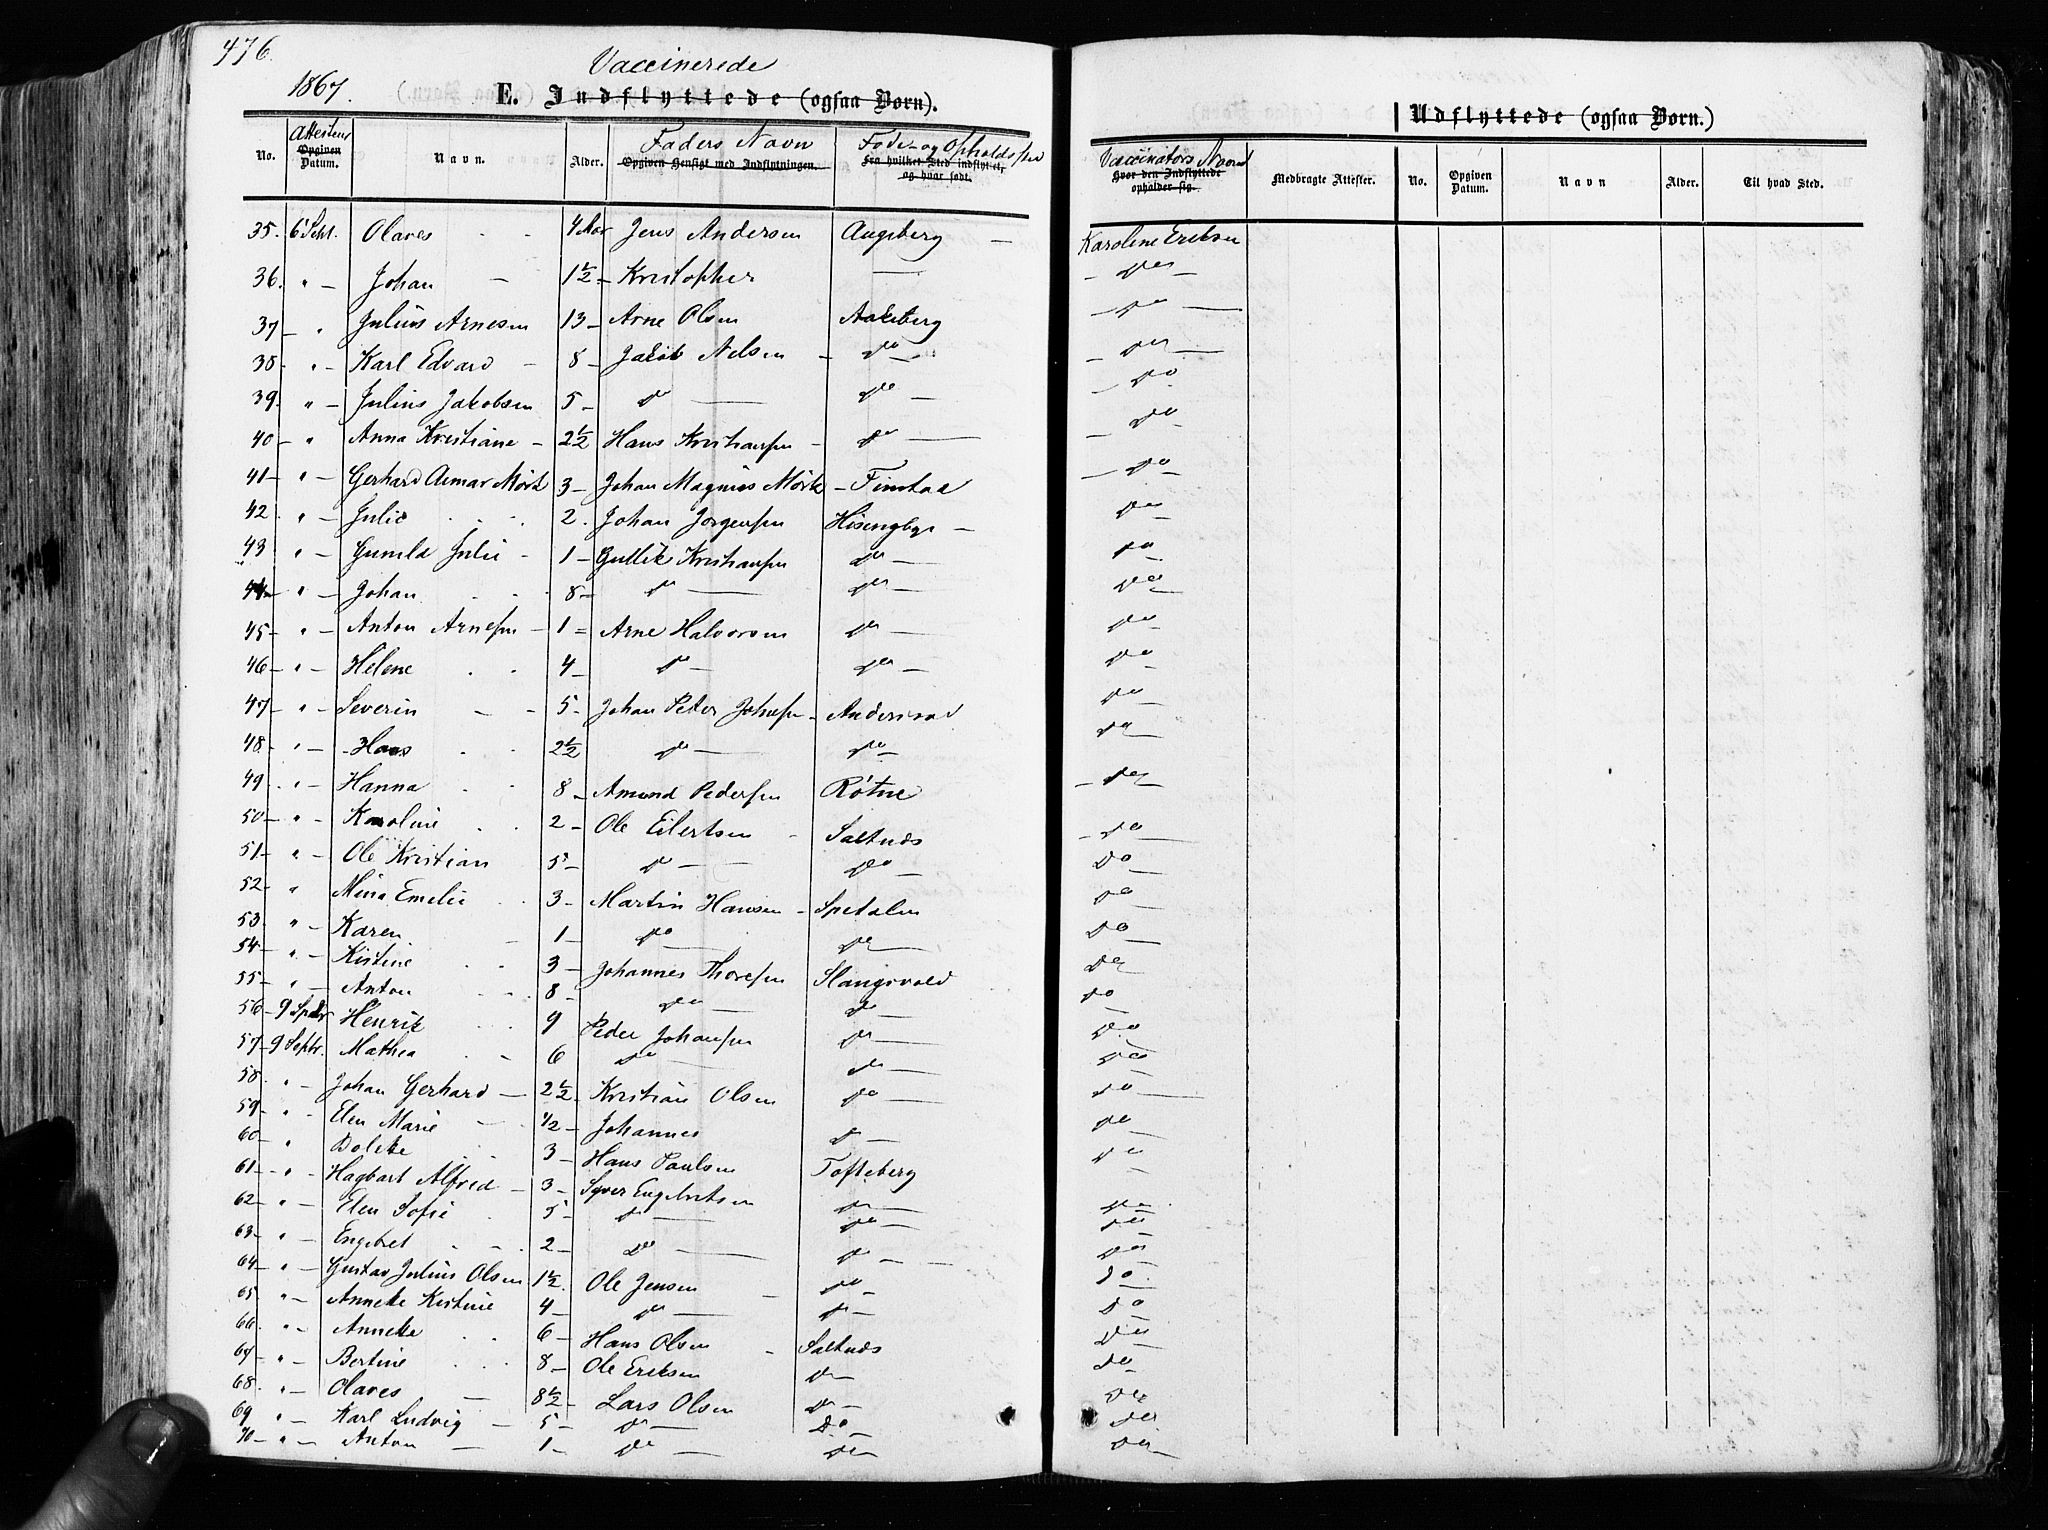 476.
Vaccinerede
1867.
E. Indflyttede (ogsaa Børn).
Udflyttede (ogsaa Børn.)
No. Attestens Opgiven Datum. Navn. Alder. Faders Navn Opgiven Hensigt med Indflytningen. Føde- og Opholdssted Fra hvilket Sted indflyttet, og hvor født. Vaccinators Navn Hvor den Indflyttede opholder sig. Medbragte Attester. No. Opgiven Datum. Navn Alder. Til hvad Sted.
35. 6 Sept. Olaves 4 Aar Jens Andersen Augeberg — Karoline Eriksen
36. " — Johan — 1½ — Kristopher — — do —
37 — " Julius Arnesen 13 — Arne Olsen Aakeberg — do —
38. " — Karl Edvard — 8 — Jakob Nelsen — do — — do —
39. " — Julius Jakobsen 5 — do — do — — do
40 — " Anna Kristiane — 2½ Hans Kristiansen — do — — do
41 — " — Gerhard Aimar Mörk 3 — Johan Magnus Mörk — Finstad — do
42. " — Julie 2. Johan Jørgensen Høsengbye — do
43 " — Gunila Julie — 1 — Gullik Kristiansen do — do
44 — " — Johan 8 — do — do — do
45 — " — Anton Arnesen — 1 = Arne Halvorsen do — do
46 — " — Helene 4 — do — do — do
47 — " — Severin — — 5 — Johan Peter Johnsen — Andersrud do
48. " — Hans 2½ do — do do
49. " — Hanna 8 — Amund Pedersen Røtne — do
50 — " — Karoline 2 — Ole Eilertsen — Saltnds — do —
51 — " — Ole Kristian 5 — do — do — Do
52 — " Mina Emelie 3 — Martin Hansen — Spetalen do
53. " — Karen — 1 — do — do — do
54 — " — Kistine 3 — Johannes Thoresen Slangsvold do
55 — " — Anton 8 — do do — do
56 — 9 Sptbr Henrik 9 Peder Johansen do — do
57 — 9 Septbr. Mathea — 6 do do — do
58. " — Johan Gerhard — 2½ Kristian Olsen do — do —
59. " — Elen Marie — ½ — Johannes do — do —
60 — " Bolette 3 — Hans Paulsen Tofteberg do
61 — " — Hagbart Alfred — 3 — Syver Engebretsen do —
62 — " — Elen Sofie 5 — do — do — do —
63 — " — Engebret 2 — do — do — do
64 — " — Gustav Julius Olsen 1½ Ole Jensen — do — do
65. " — Anneke Kistine 4 — do — do — do
66. " — Anneke 6 — Hans Olsen — Saltnds do
67 — " — Bertine 8 — Ole Eriksen do — do
68. " — Olaves — 8½ — Lars Olsen do — do
69 " — Karl Ludvig — 5 — do — Do — do
70 — " — Anton — 1 — do — do do